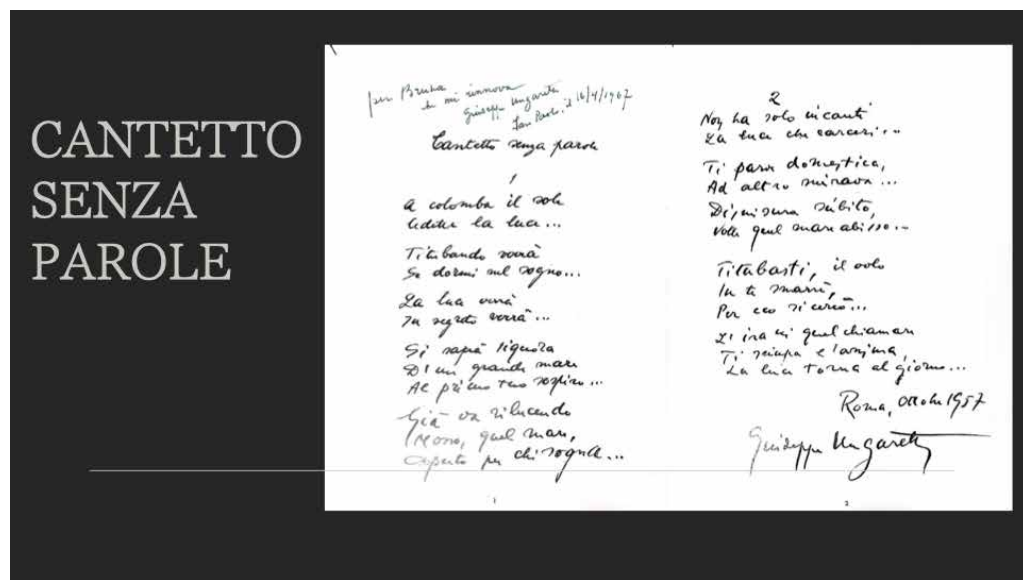 CANTETTO
SENZA
PAROLE
per Bruna
che mi rinnova
Giuseppe Ungaretti
San Paolo, il 16/4/1967
Cantetto senza parole
1
A colomba il sole
Cedette la luce...
Titubando verrà
Se dormi nel sogno...
La luce verrà
In segreto verrà...
Si saprà signora
D'un grande mare
Al primo tuo sospiro...
Già va rilucendo
Mosso, quel mare,
Aperto per chi sogna...
1
2
Non ha solo incanti
La luce che carceri...
Ti parve domestica,
Ad altro mirava...
Dismisura súbito,
Volle quel mare abisso...
Titubasti, il volo
In te smarrì,
Per eco si cercò...
L'ira in quel chiamare
Ti sciupa l'anima,
La luce torna al giorno...
Roma, ottobre 1957
Giuseppe Ungaretti
2